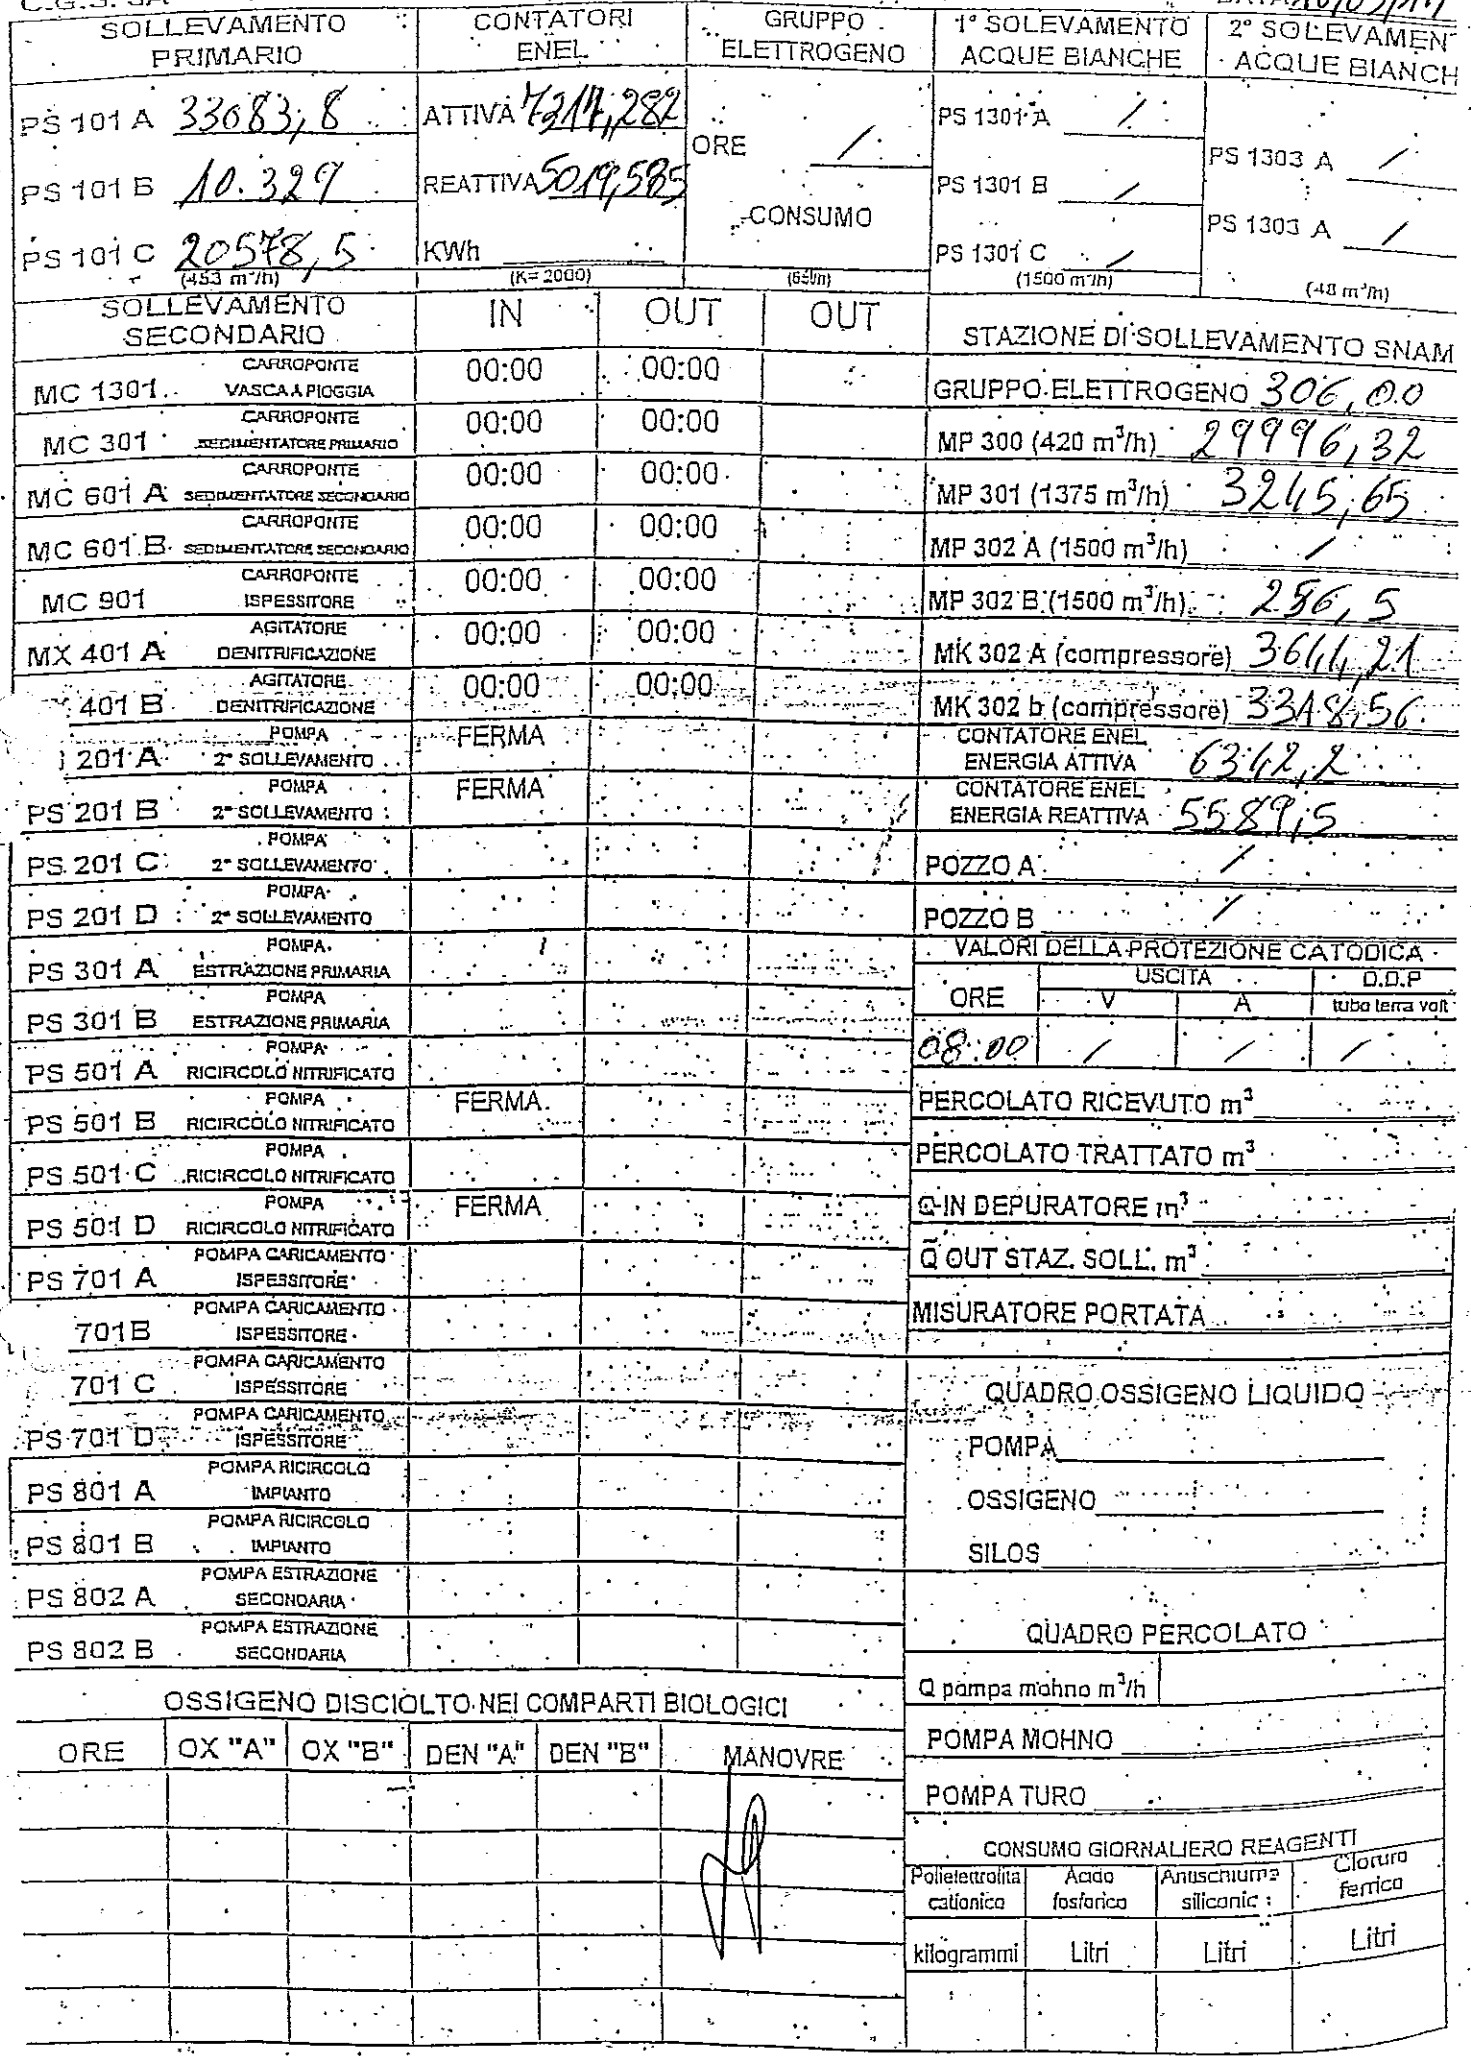 SOLLEVAMENTO PRIMARIO
PS 101 A 33083,8
PS 101 B 10.329
PS 101 C 20578,5
(453 m³/h)
CONTATORI ENEL
ATTIVA
REATTIVA 5019,585
KWh
(K= 2000)
GRUPPO ELETTROGENO
ORE /
CONSUMO
1° SOLEVAMENTO ACQUE BIANCHE
PS 1301 A /
PS 1301 B /
PS 1301 C /
(1500 m³/h)
2° SOLEVAMEN
ACQUE BIANCH
PS 1303 A /
PS 1303 A /
(48 m³/h)
SOLLEVAMENTO SECONDARIO IN OUT OUT
MC 1301 CARROPONTE VASCA A PIOGGIA 00:00 00:00
MC 301 CARROPONTE SEDIMENTATORE PRIMARIO 00:00 00:00
MC 601 A CARROPONTE SEDIMENTATORE SECONDARIO 00:00 00:00
MC 601 B CARROPONTE SEDIMENTATORE SECONDARIO 00:00 00:00
MC 901 CARROPONTE ISPESSITORE 00:00 00:00
MX 401 A AGITATORE DENITRIFICAZIONE 00:00 00:00
401 B AGITATORE DENITRIFICAZIONE 00:00 00:00
201 A POMPA 2° SOLLEVAMENTO FERMA
PS 201 B POMPA 2° SOLLEVAMENTO FERMA
PS 201 C POMPA 2° SOLLEVAMENTO
PS 201 D POMPA 2° SOLLEVAMENTO
PS 301 A POMPA ESTRAZIONE PRIMARIA
PS 301 B POMPA ESTRAZIONE PRIMARIA
PS 501 A POMPA RICIRCOLO NITRIFICATO
PS 501 B POMPA RICIRCOLO NITRIFICATO FERMA
PS 501 C POMPA RICIRCOLO NITRIFICATO
PS 501 D POMPA RICIRCOLO NITRIFICATO FERMA
PS 701 A POMPA CARICAMENTO ISPESSITORE
701 B POMPA CARICAMENTO ISPESSITORE
701 C POMPA CARICAMENTO ISPESSITORE
PS 701 D POMPA CARICAMENTO ISPESSITORE
PS 801 A POMPA RICIRCOLO IMPIANTO
PS 801 B POMPA RICIRCOLO IMPIANTO
PS 802 A POMPA ESTRAZIONE SECONDARIA
PS 802 B POMPA ESTRAZIONE SECONDARIA
OSSIGENO DISCIOLTO NEI COMPARTI BIOLOGICI
ORE OX "A" OX "B" DEN "A" DEN "B" MANOVRE
STAZIONE DI SOLLEVAMENTO SNAM
GRUPPO ELETTROGENO 306,00
MP 300 (420 m³/h) 29996,32
MP 301 (1375 m³/h) 3245,65
MP 302 A (1500 m³/h) /
MP 302 B (1500 m³/h) 256,5
MK 302 A (compressore)
MK 302 b (compressore) 3348,56
CONTATORE ENEL ENERGIA ATTIVA 6342,2
CONTATORE ENEL ENERGIA REATTIVA 5589,5
POZZO A /
POZZO B /
VALORI DELLA PROTEZIONE CATODICA
ORE USCITA D.D.P
V A tubo terra volt
08:00 / / /
PERCOLATO RICEVUTO m³
PERCOLATO TRATTATO m³
Q IN DEPURATORE m³
Q OUT STAZ. SOLL. m³
MISURATORE PORTATA
QUADRO OSSIGENO LIQUIDO
POMPA
OSSIGENO
SILOS
QUADRO PERCOLATO
Q pompa mohno m³/h
POMPA MOHNO
POMPA TURO
CONSUMO GIORNALIERO REAGENTI
Polielettrolita cationico Acido fosforico Antischiuma siliconic Cloruro ferrico
kilogrammi Litri Litri Litri